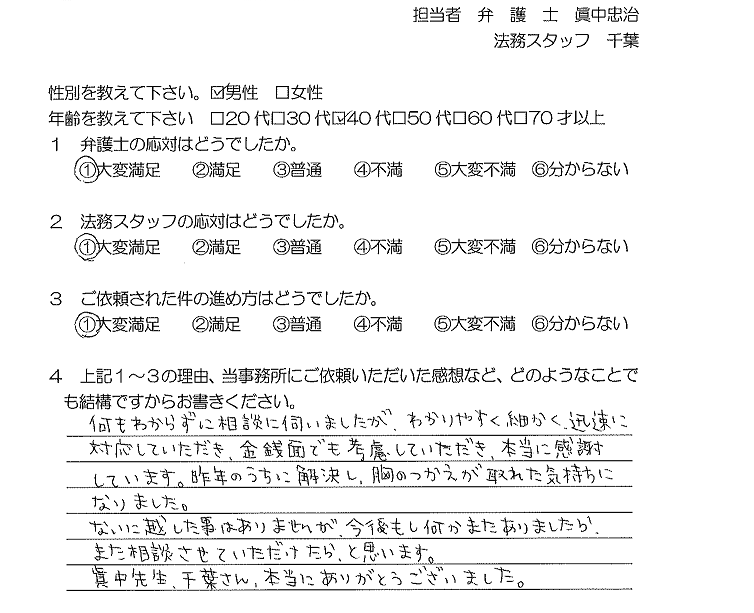 担当者 弁 護 士 眞中忠治
法務スタッフ 千葉
性別を教えて下さい。☑男性 □女性
年齢を教えて下さい □20代□30代☑40代□50代□60代□70才以上
1 弁護士の応対はどうでしたか。
①大変満足 ②満足 ③普通 ④不満 ⑤大変不満 ⑥分からない
2 法務スタッフの応対はどうでしたか。
①大変満足 ②満足 ③普通 ④不満 ⑤大変不満 ⑥分からない
3 ご依頼された件の進め方はどうでしたか。
①大変満足 ②満足 ③普通 ④不満 ⑤大変不満 ⑥分からない
4 上記1~3の理由、当事務所にご依頼いただいた感想など、どのようなことで
も結構ですからお書きください。
何もわからずに相談に伺いましたが、わかりやすく細かく、迅速に
対応していただき、金銭面でも考慮していただき、本当に感謝
しています。昨年のうちに解決し、胸のつかえが取れた気持ちに
なりました。
ないに越した事はありませんが、今後もし何かまたありましたら、
また相談させていただけたら、と思います。
眞中先生、千葉さん、本当にありがとうございました。